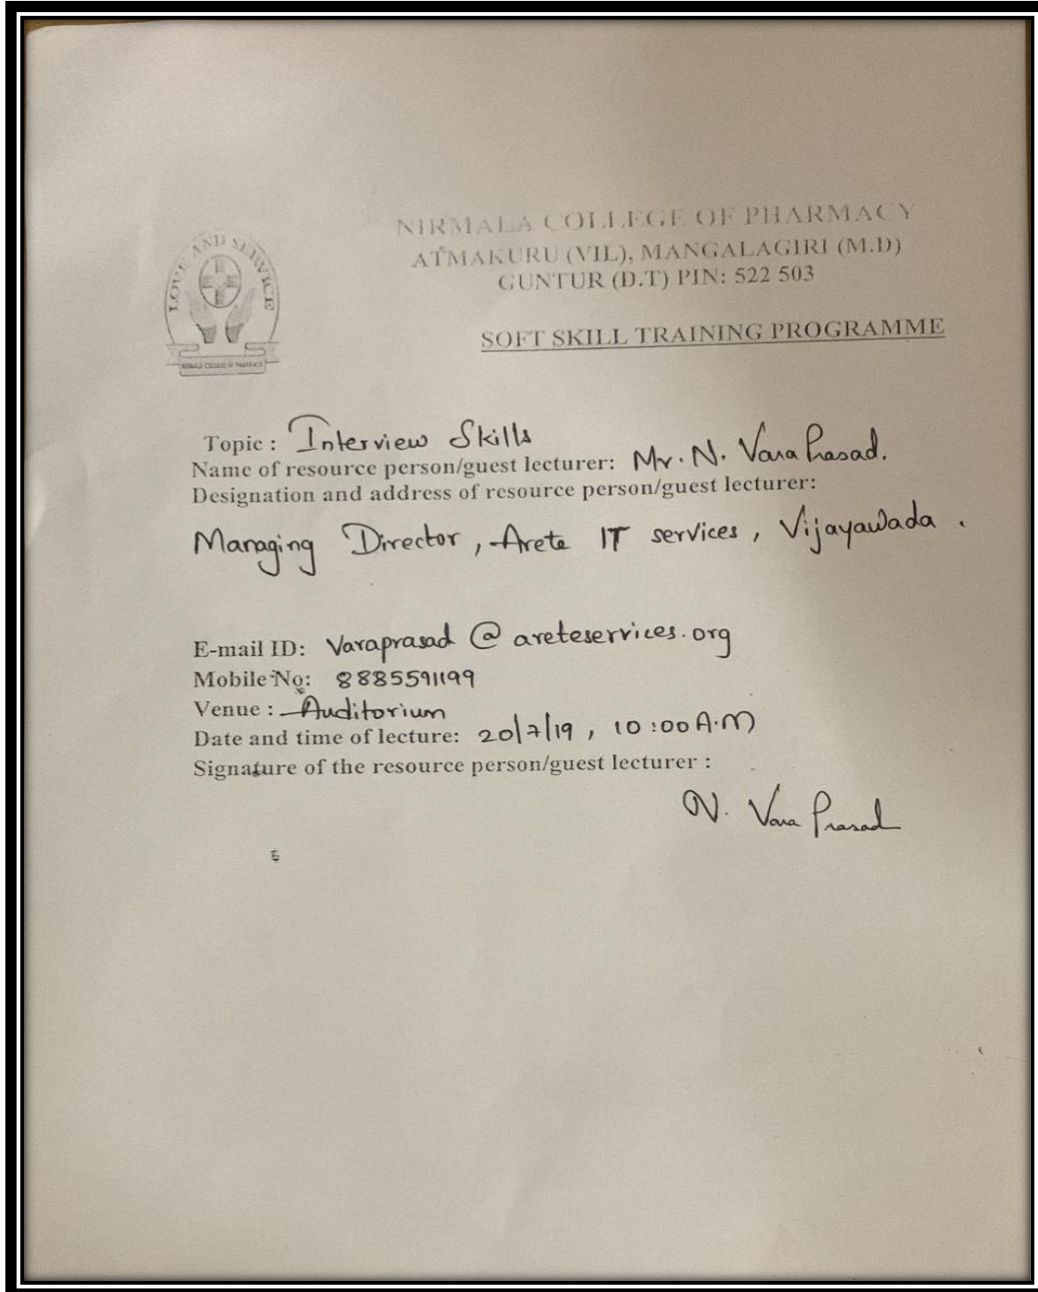 NIRMALA COLLEGE OF PHARMACY
ATMAKURU (VIL), MANGALAGIRI (M.D)
GUNTUR (D.T) PIN: 522 503
LOVE AND SERVICE
NIRMALA COLLEGE OF PHARMACY
SOFT SKILL TRAINING PROGRAMME
Topic : Interview Skills
Name of resource person/guest lecturer: Mr. N. Vara Prasad.
Designation and address of resource person/guest lecturer:
Managing Director, Arete IT services, Vijayawada.
E-mail ID: Varaprasad @ areteservices.org
Mobile No: 8885591199
Venue : Auditorium
Date and time of lecture: 20/7/19, 10:00 A.M
Signature of the resource person/guest lecturer :
N. Vara Prasad